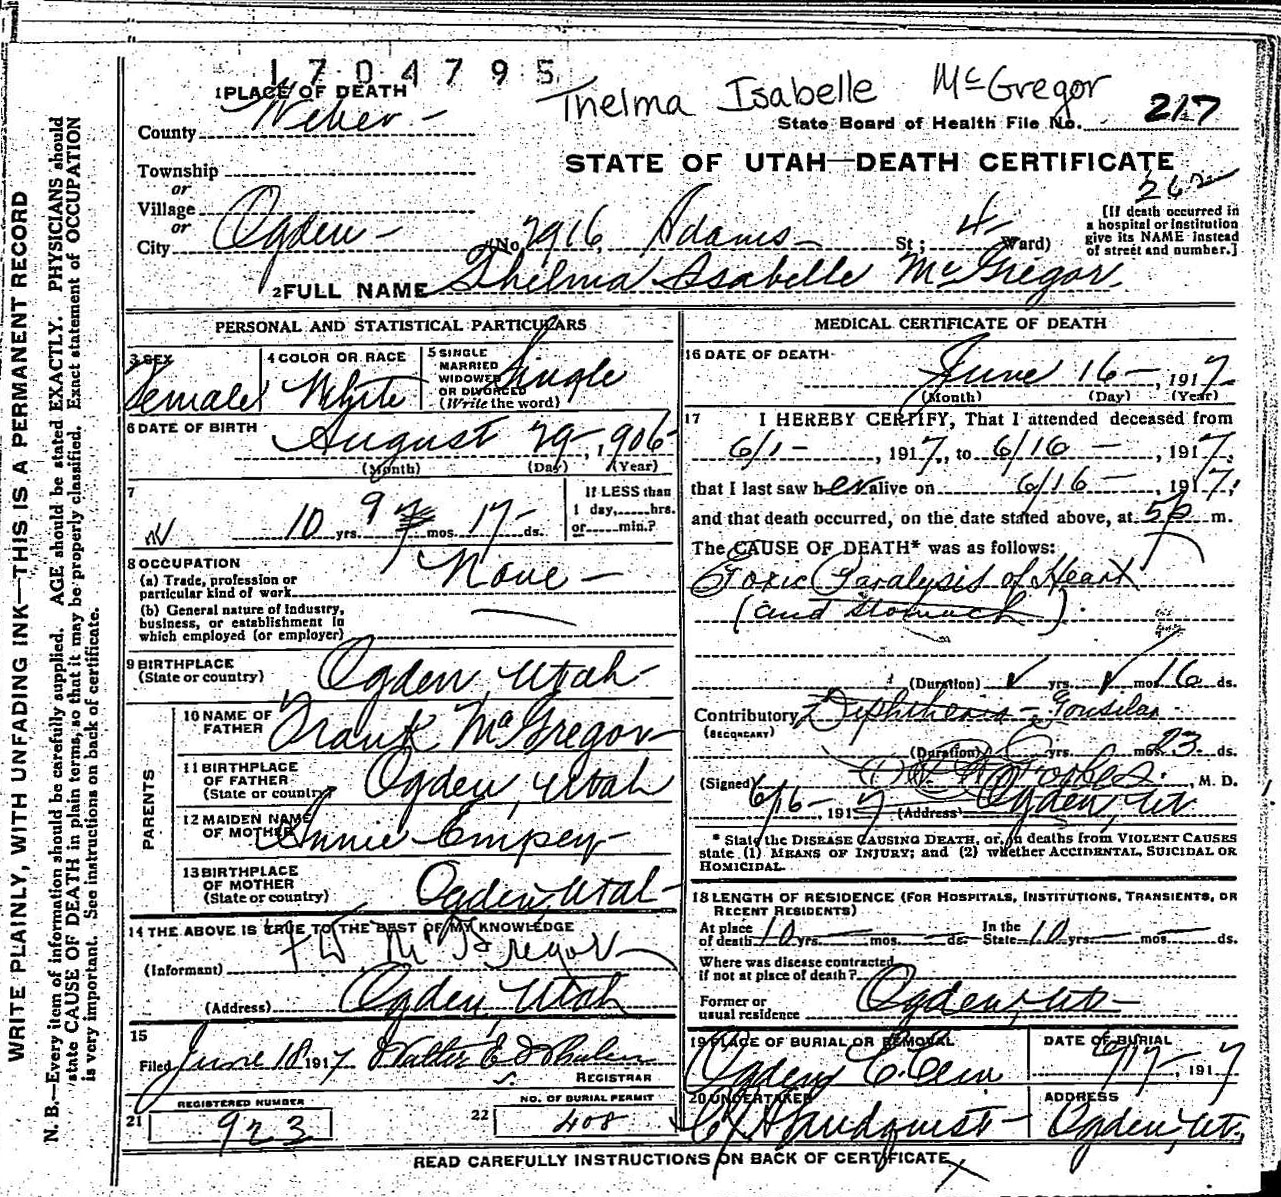 1704795
Thelma Isabelle McGregor
1 PLACE OF DEATH
County Weber
State Board of Health File No. 217
STATE OF UTAH—DEATH CERTIFICATE
Township
or
Village
or
City Ogden (No. 2916 Adams St; 4 Ward)
262
[If death occurred in a hospital or institution give its NAME instead of street and number.]
2 FULL NAME Thelma Isabelle McGregor.
PERSONAL AND STATISTICAL PARTICULARS
3 SEX Female
4 COLOR OR RACE White
5 SINGLE MARRIED WIDOWED OR DIVORCED (Write the word) Single
6 DATE OF BIRTH August 29, 1906
(Month) (Day) (Year)
7 10 yrs. 9 mos. 17 ds.
If LESS than 1 day, hrs. or min.?
8 OCCUPATION
(a) Trade, profession or particular kind of work None
(b) General nature of industry, business, or establishment in which employed (or employer)
9 BIRTHPLACE (State or country) Ogden, Utah
PARENTS
10 NAME OF FATHER Frank McGregor
11 BIRTHPLACE OF FATHER (State or country) Ogden, Utah
12 MAIDEN NAME OF MOTHER Annie Empey
13 BIRTHPLACE OF MOTHER (State or country) Ogden, Utah
14 THE ABOVE IS TRUE TO THE BEST OF MY KNOWLEDGE
(Informant) F W McGregor
(Address) Ogden, Utah
15
Filed June 18 1917 Walter E Whalen
REGISTRAR
REGISTERED NUMBER
21 923
NO. OF BURIAL PERMIT
22 408
MEDICAL CERTIFICATE OF DEATH
16 DATE OF DEATH June 16, 1917
(Month) (Day) (Year)
17 I HEREBY CERTIFY, That I attended deceased from
6/1, 1917, to 6/16, 1917,
that I last saw her alive on 6/16, 1917,
and that death occurred, on the date stated above, at 5 p m.
The CAUSE OF DEATH* was as follows:
Toxic Paralysis of Heart
(and Stomach).
(Duration) yrs. mos. 16 ds.
Contributory Diphtheria - Tonsilar
(SECONDARY)
(Duration) yrs. mos. 23 ds.
(Signed) Forbes, M. D.
6/16, 1917 (Address) Ogden, Ut
* State the DISEASE CAUSING DEATH, or, in deaths from VIOLENT CAUSES
state (1) MEANS OF INJURY; and (2) whether ACCIDENTAL, SUICIDAL OR
HOMICIDAL.
18 LENGTH OF RESIDENCE (FOR HOSPITALS, INSTITUTIONS, TRANSIENTS, OR RECENT RESIDENTS)
At place of death 10 yrs. mos. ds. In the State 10 yrs. mos. ds.
Where was disease contracted, if not at place of death?
Former or usual residence Ogden, Ut
19 PLACE OF BURIAL OR REMOVAL Ogden C. Cem
DATE OF BURIAL 6/17, 1917
20 UNDERTAKER Lindquist
ADDRESS Ogden, Ut.
READ CAREFULLY INSTRUCTIONS ON BACK OF CERTIFICATE
WRITE PLAINLY, WITH UNFADING INK—THIS IS A PERMANENT RECORD
N. B.—Every item of information should be carefully supplied. AGE should be stated EXACTLY. PHYSICIANS should
state CAUSE OF DEATH in plain terms, so that it may be properly classified. Exact statement of OCCUPATION
is very important. See instructions on back of certificate.